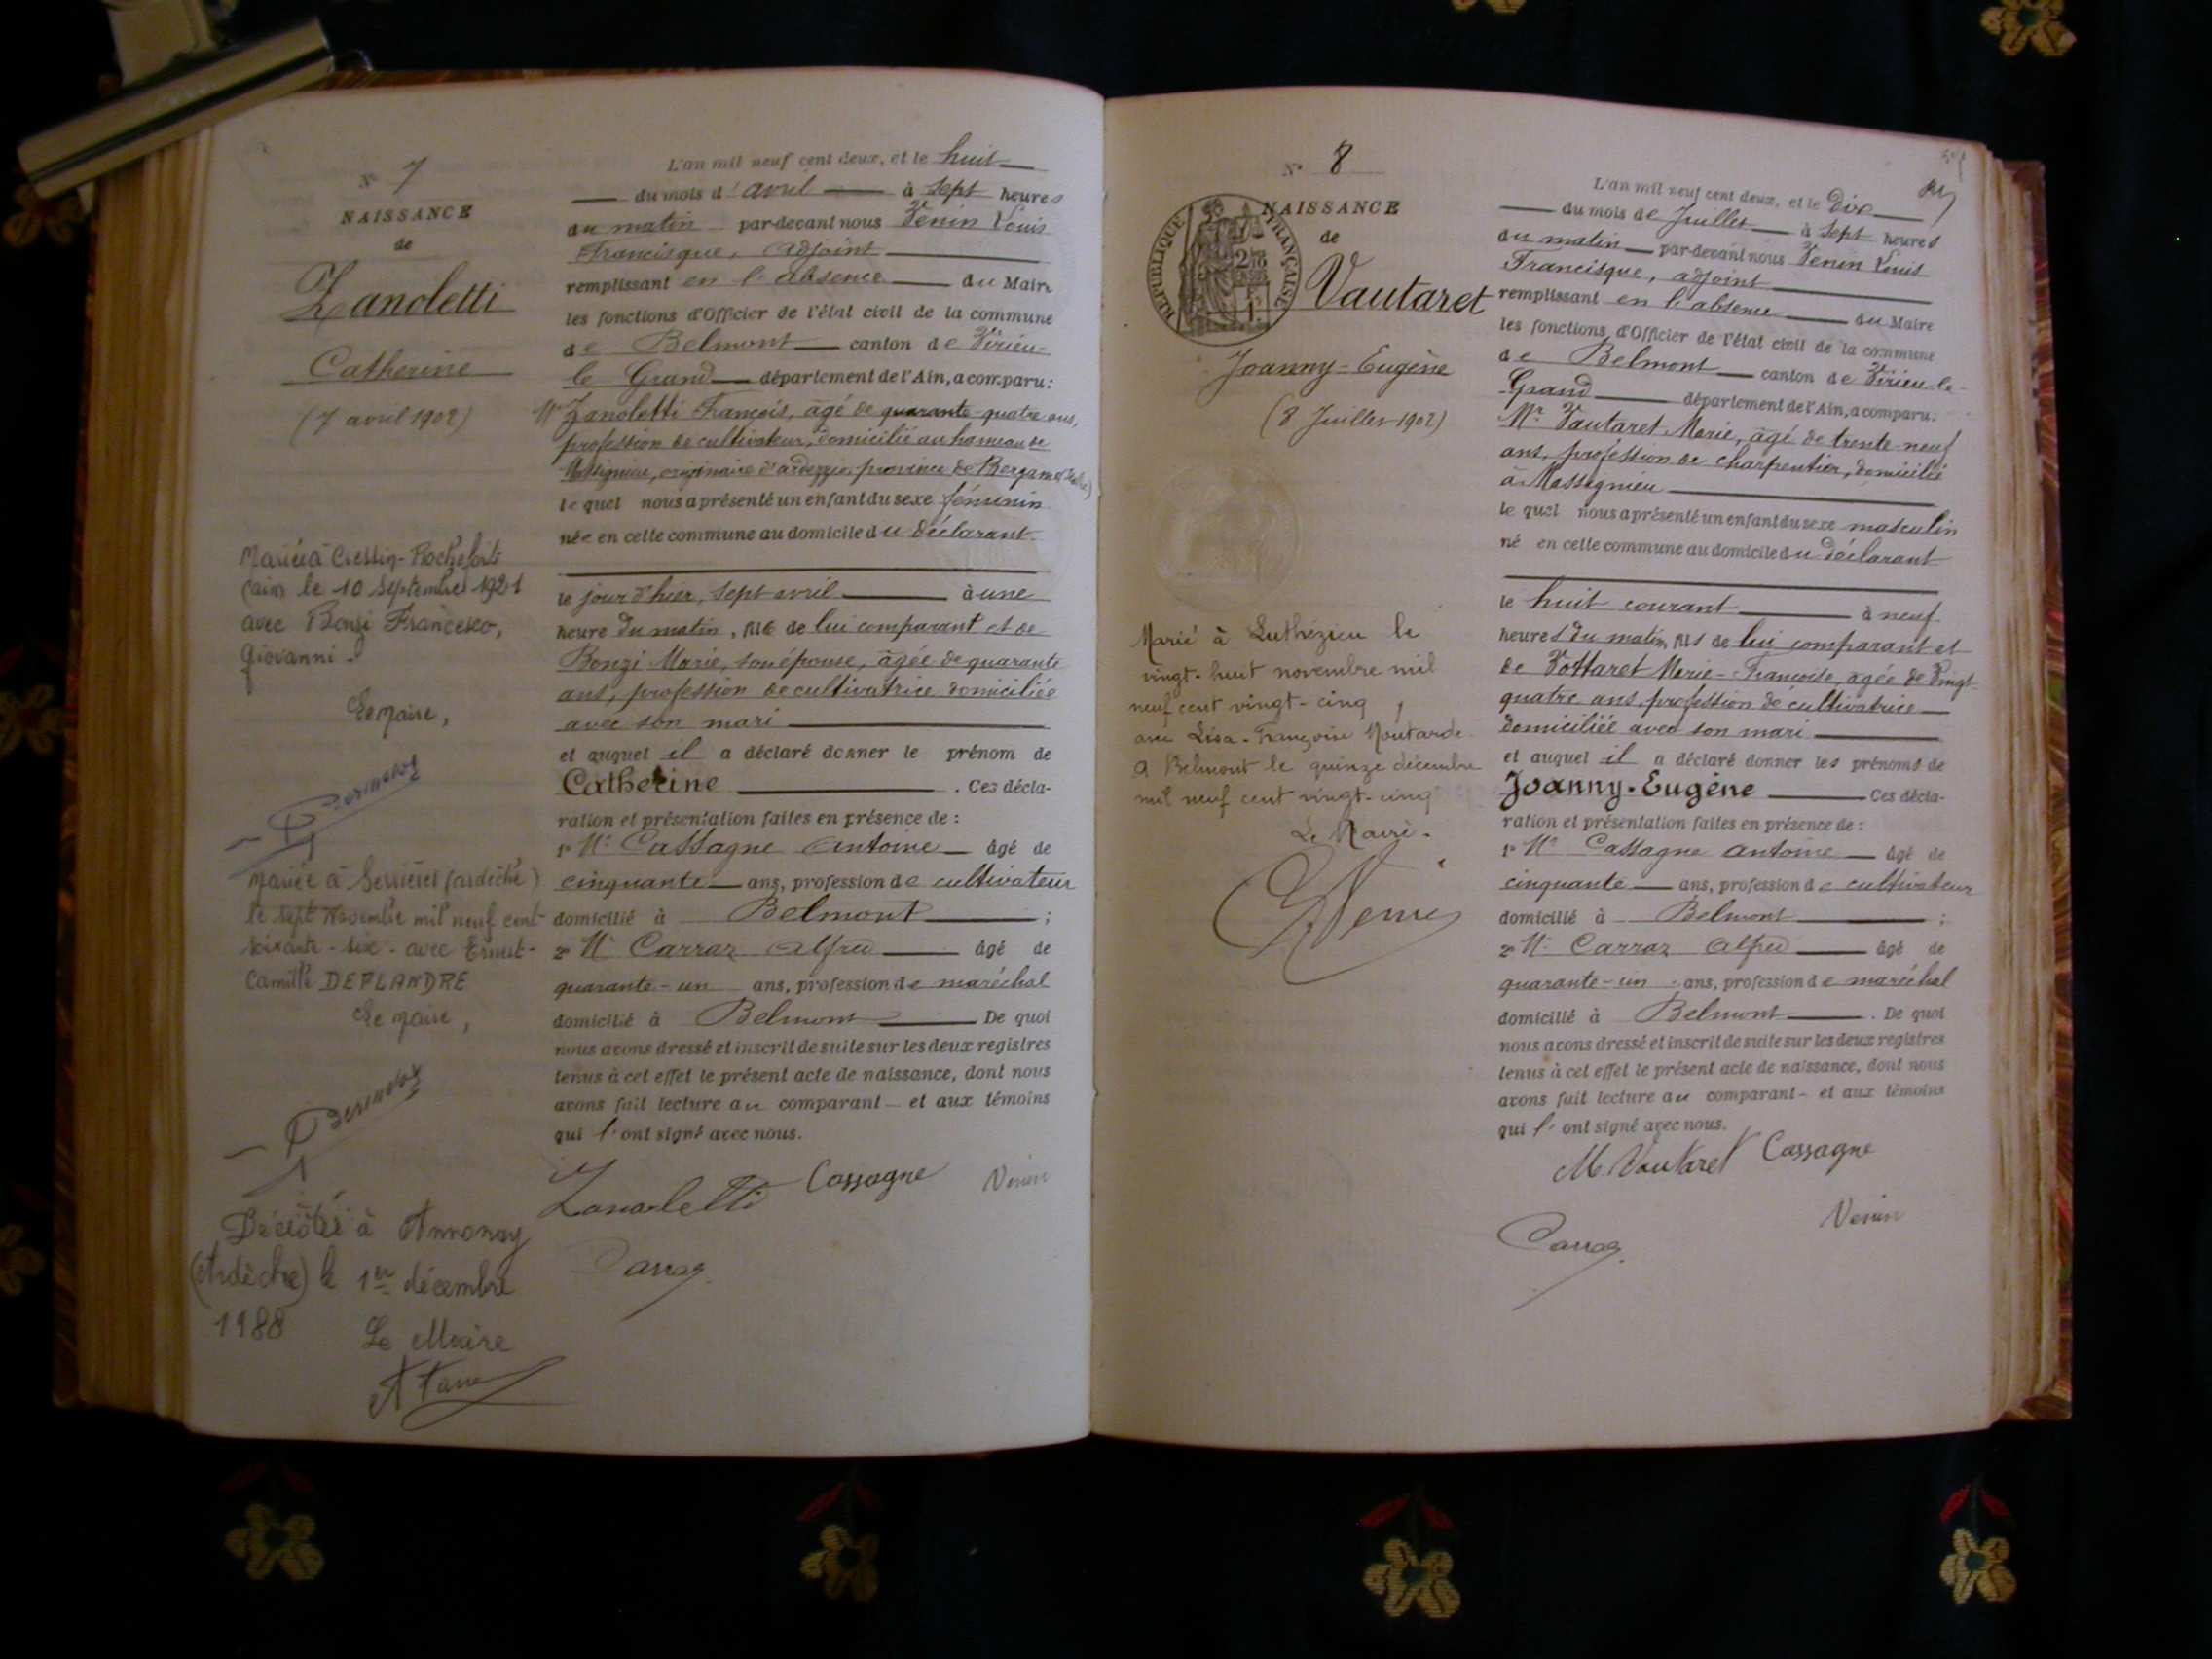 N° 7
NAISSANCE
de
Zanoletti
Catherine
(7 avril 1902)
Mariée à Cressin-Rochefort
(ain) le 10 Septembre 1921
avec Bonzi Francesco,
Giovanni -
Le Maire,
Mariée à Serrières (ardèche)
le sept Novembre mil neuf cent
soixante-six - avec Ernest-
Camille DEPLANDRE
Le Maire,
Décédée à Annonay
(Ardèche) le 1er décembre
1988
Le Maire
L'an mil neuf cent deux, et le huit
du mois d'avril à sept heures
du matin par-devant nous Venin Louis
Francisque, adjoint
remplissant en l'absence du Maire
les fonctions d'Officier de l'état civil de la commune
de Belmont canton de Virieu-
le Grand département de l'Ain, a comparu:
Mr Zanoletti François, âgé de quarante-quatre ans,
profession de cultivateur, domicilié au hameau de
Massignieu, originaire d'ardezzio, province de Bergame (Italie)
lequel nous a présenté un enfant du sexe féminin
née en cette commune au domicile du déclarant
le jour d'hier, sept avril à une
heure du matin, fille de lui comparant et de
Bonzi Marie, son épouse, âgée de quarante
ans, profession de cultivatrice domiciliée
avec son mari
et auquel il a déclaré donner le prénom de
Catherine . Ces décla-
ration et présentation faites en présence de :
1° Mr Cassagne Antoine âgé de
cinquante ans, profession de cultivateur
domicilié à Belmont ;
2° Mr Carraz Alfred âgé de
quarante-un ans, profession de maréchal
domicilié à Belmont De quoi
nous avons dressé et inscrit de suite sur les deux registres
tenus à cet effet le présent acte de naissance, dont nous
avons fait lecture au comparant et aux témoins
qui l'ont signé avec nous.
Zanoletti Cassagne Venin
Carraz
N° 8
NAISSANCE
de
RÉPUBLIQUE FRANÇAISE
Vautaret
Joanny-Eugène
(8 Juillet 1902)
Marié à Luthézieu le
vingt-huit novembre mil
neuf cent vingt-cinq,
avec Lisa-Françoise Moutarde.
A Belmont le quinze décembre
mil neuf cent vingt-cinq
Le Maire.
L'an mil neuf cent deux, et le Dix
du mois de Juillet à sept heures
du matin par-devant nous Venin Louis
Francisque, adjoint
remplissant en l'absence du Maire
les fonctions d'Officier de l'état civil de la commune
de Belmont canton de Virieu-le-
Grand département de l'Ain, a comparu:
Mr Vautaret Marie, âgé de trente-neuf
ans, profession de charpentier, domicilié
à Massignieu
lequel nous a présenté un enfant du sexe masculin
né en cette commune au domicile du déclarant
le huit courant à neuf
heures du matin, fils de lui comparant et
de Vottaret Marie-Françoise, agée de vingt-
quatre ans, profession de cultivatrice
domiciliée avec son mari
et auquel il a déclaré donner les prénoms de
Joanny-Eugène Ces décla-
ration et présentation faites en présence de :
1° Mr Cassagne Antoine âgé de
cinquante ans, profession de cultivateur
domicilié à Belmont ;
2° Mr Carraz Alfred âgé de
quarante-un ans, profession de maréchal
domicilié à Belmont . De quoi
nous avons dressé et inscrit de suite sur les deux registres
tenus à cet effet le présent acte de naissance, dont nous
avons fait lecture au comparant et aux témoins
qui l'ont signé avec nous.
M. Vautaret Cassagne
Venin
Carraz